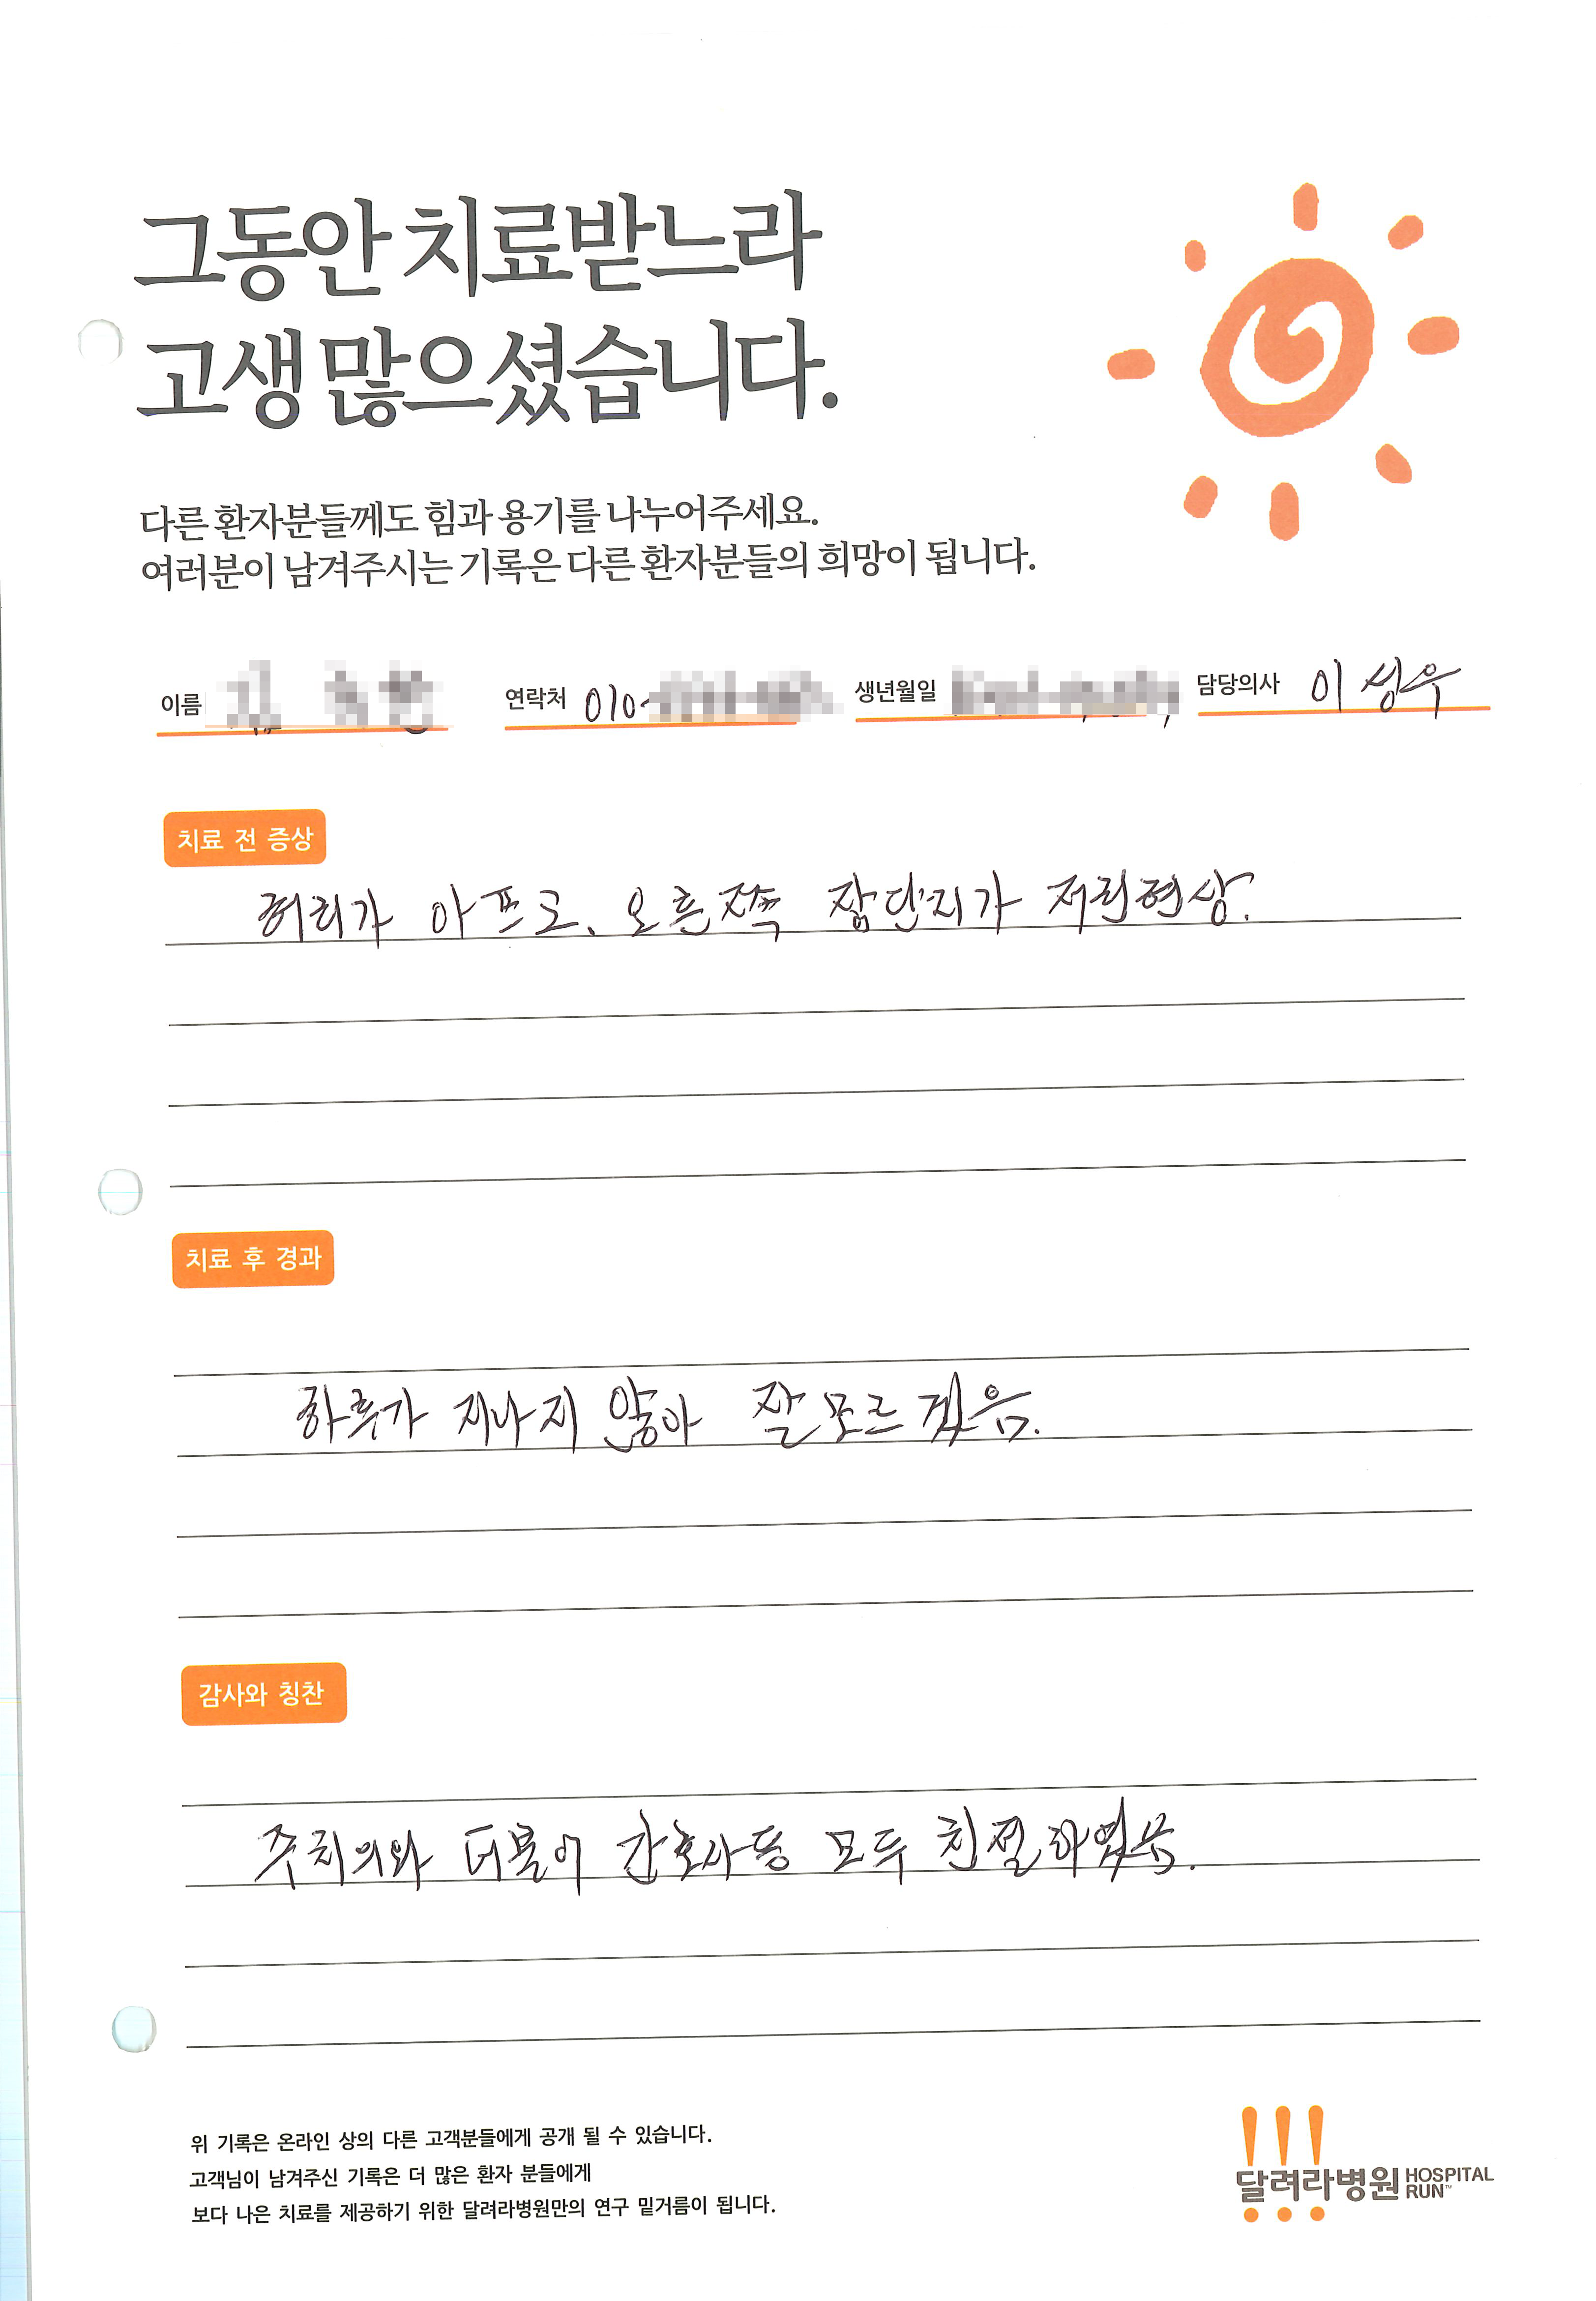 그동안 치료받느라
고생 많으셨습니다.
다른 환자분들께도 힘과 용기를 나누어주세요.
여러분이 남겨주시는 기록은 다른 환자분들의 희망이 됩니다.
이름 연락처 010- 생년월일 담당의사 이성우
치료 전 증상
허리가 아프고, 오른쪽 장단지가 저린현상.
치료 후 경과
하루가 지나지 않아 잘 모르겠음.
감사와 칭찬
주치의와 더불어 간호사등 모두 친절하였음.
위 기록은 온라인 상의 다른 고객분들에게 공개 될 수 있습니다.
고객님이 남겨주신 기록은 더 많은 환자 분들에게
보다 나은 치료를 제공하기 위한 달려라병원만의 연구 밑거름이 됩니다.
달려라병원 HOSPITAL RUN™